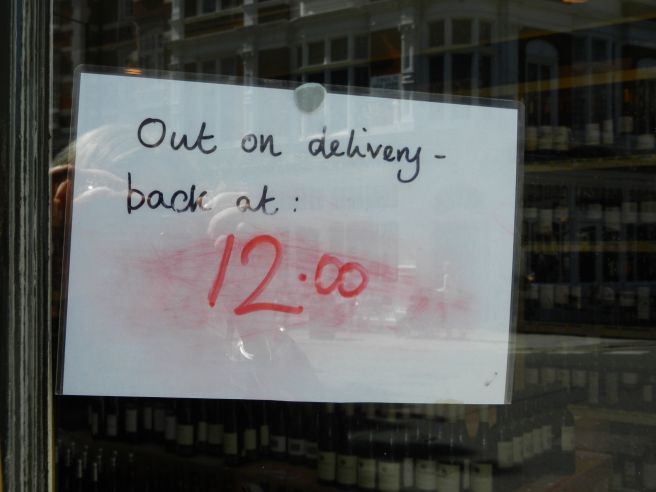 Out on delivery -
back at:
12.00